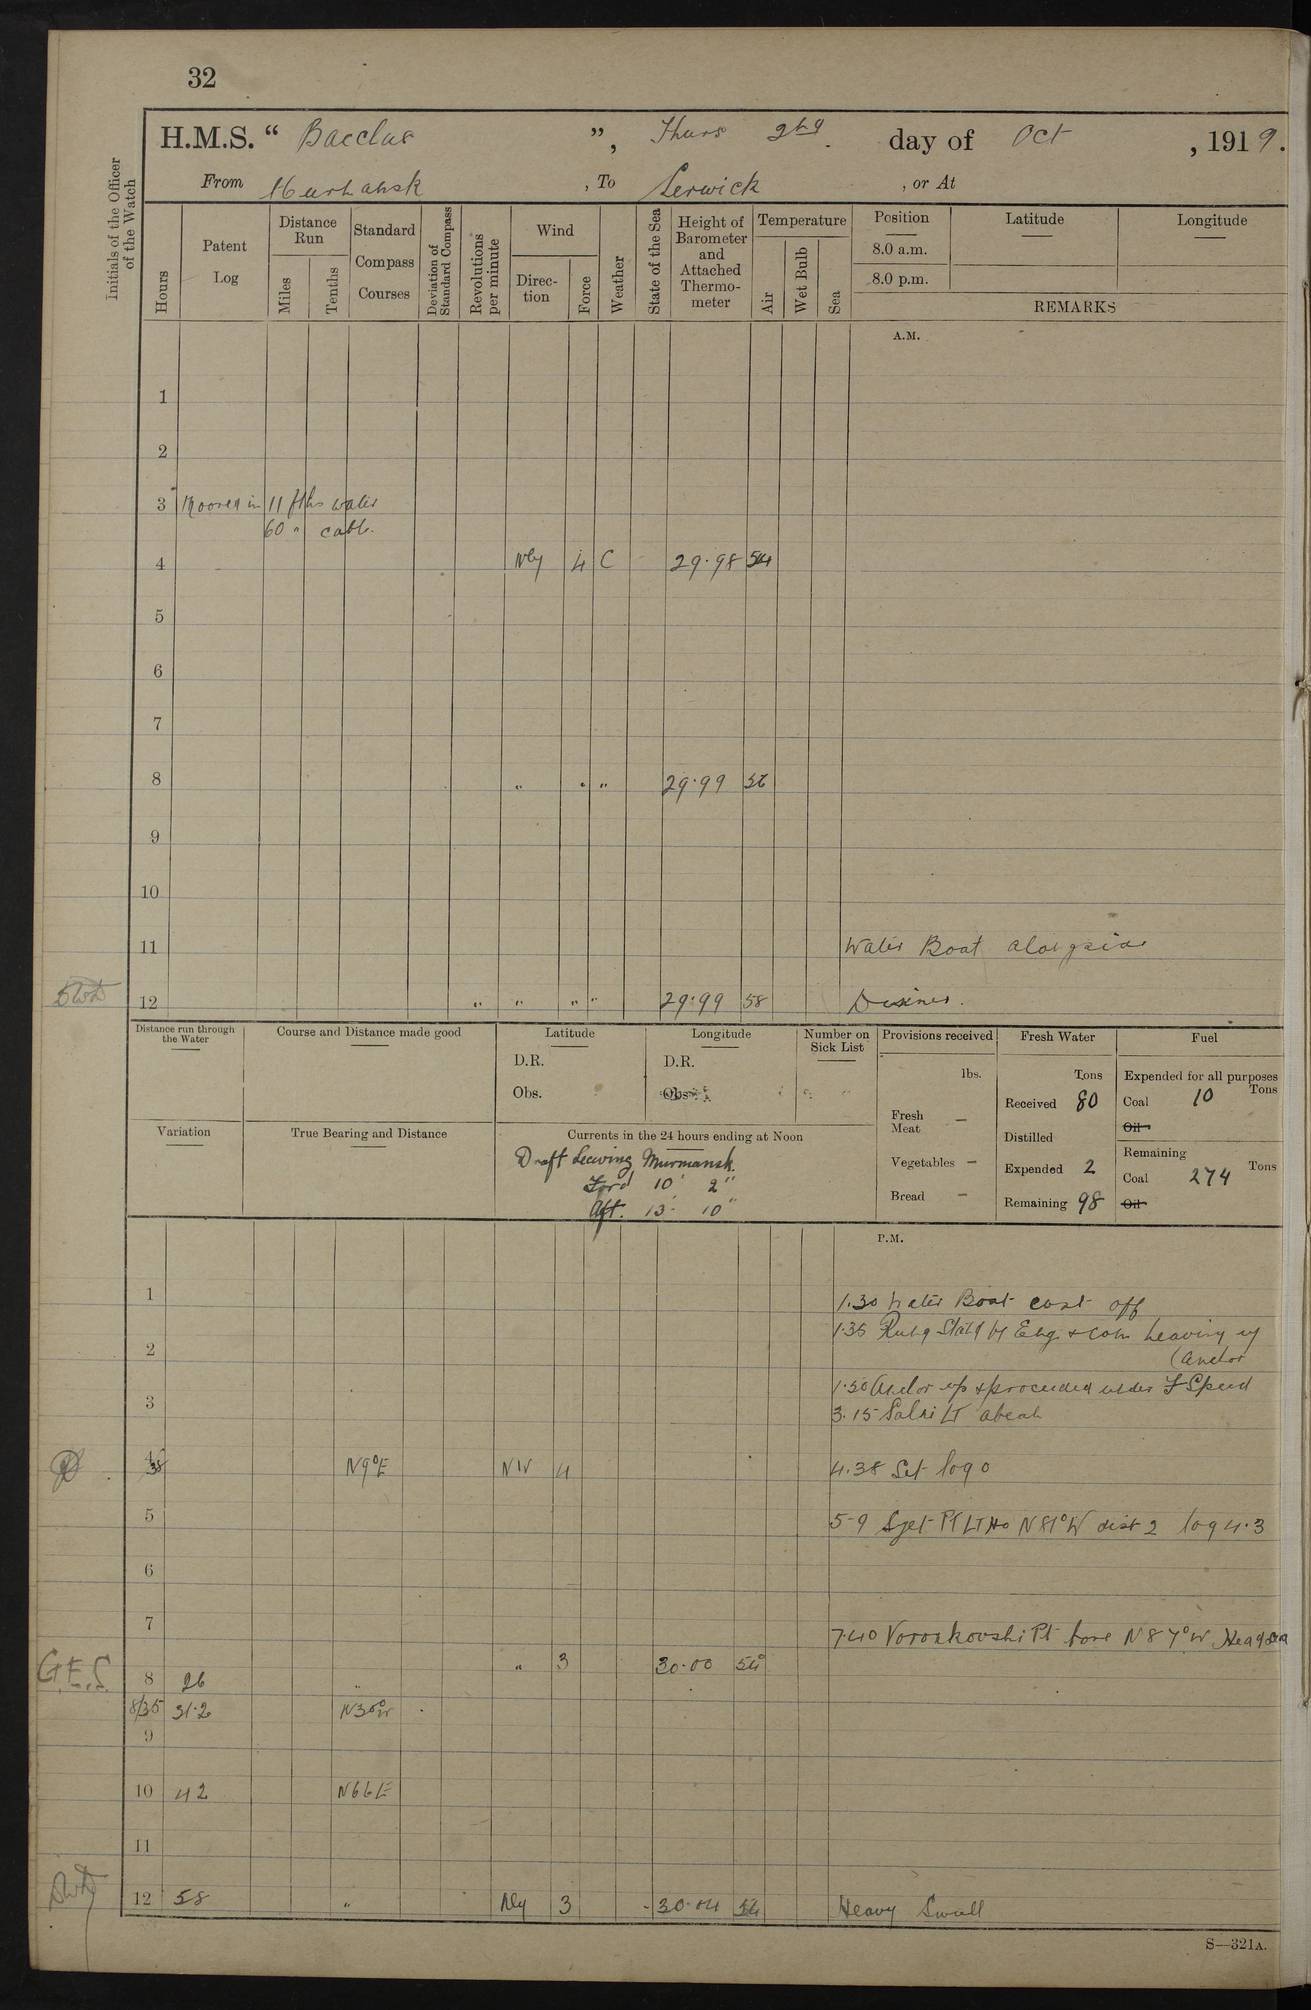 32
H.M.S. " Bacchus ", Thurs 2nd day of Oct , 1919.
From Murmansk , To Lerwick , or At
Initials of the Officer of the Watch
Hours
Patent Log
Distance Run
Miles
Tenths
Standard Compass Courses
Deviation of Standard Compass
Revolutions per minute
Wind
Direction
Force
Weather
State of the Sea
Height of Barometer and Attached Thermometer
Temperature
Air
Wet Bulb
Sea
Position
8.0 a.m.
8.0 p.m.
Latitude
Longitude
REMARKS
A.M.
1
2
3 Moored in 11 fths water
60 " cable.
4 Nly 4 C 29.98 54
5
6
7
8 " " " 29.99 56
9
10
11 Water Boat alongside
12 " " " " 29.99 58 Dinner.
Distance run through the Water
Course and Distance made good
Latitude
D.R.
Obs.
Longitude
D.R.
Obs.
Number on Sick List
Provisions received
lbs.
Fresh Meat –
Vegetables –
Bread –
Fresh Water
Tons
Received 80
Distilled
Expended 2
Remaining 98
Fuel
Expended for all purposes
Tons
Coal 10
Oil
Remaining
Tons
Coal 274
Oil
Variation
True Bearing and Distance
Currents in the 24 hours ending at Noon
Draft Leaving Murmansk.
Ford 10' 2"
Aft. 13' 10"
P.M.
1 1.30 Water Boat cast off
1.35 Rung Stand by Eng & com heaving up
2 (anchor
1.50 Anchor up & proceeded under F Speed
3 3.15 Salni LT abeam
4 38 N9°E NW 4 4.38 Set log 0
5 5-9 Sjet Pt LT Ho N81°W dist 2 log 4.3
6
7 7.40 Voronkovski Pt bore N87°W Head sea
G.E.S. 8 26 " " 3 30.00 54°
8/35 31.2 N30°W
9
10 42 N66E
11
12 58 " Nly 3 30.04 54 Heavy Swell
S—321A.